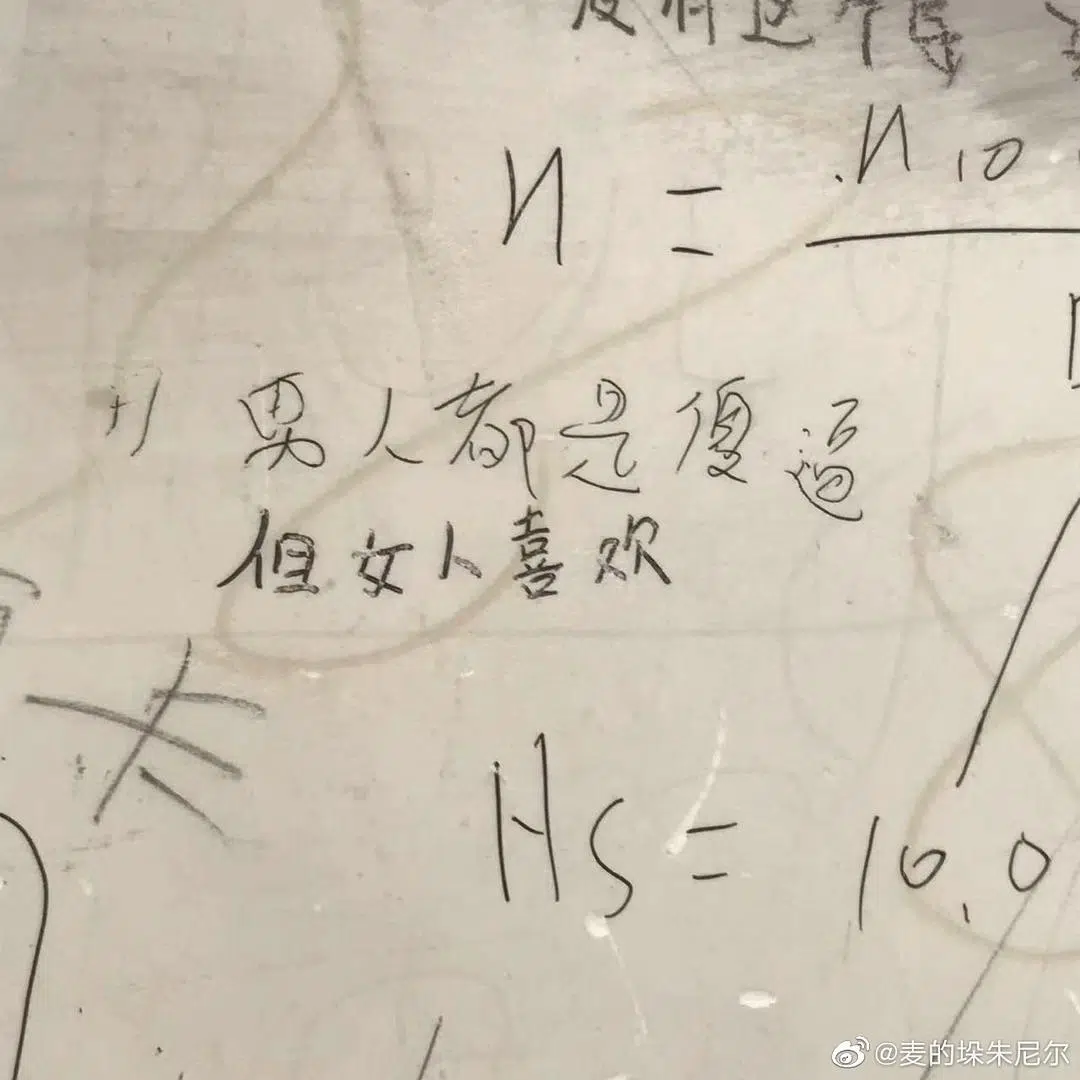 没有这个
n = n 10
+1 男人都是傻逼
但女人喜欢
Hs = 10.0
@麦的垛朱尼尔